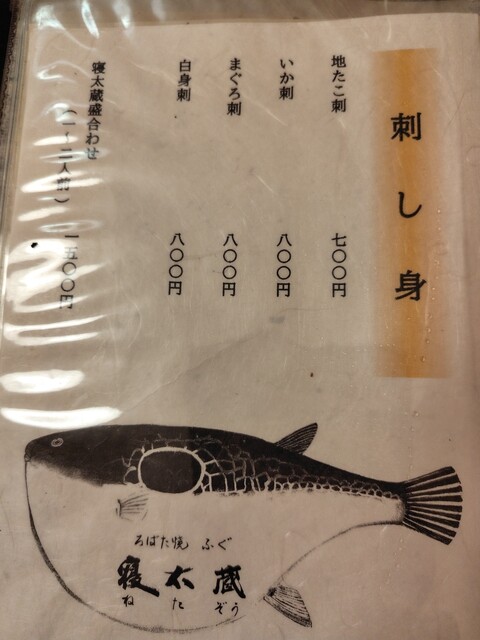 刺し身
地たこ刺 七〇〇円
いか刺 八〇〇円
まぐろ刺 八〇〇円
白身刺 八〇〇円
寝太蔵盛合わせ
（一～二人前） 一五〇〇円
ろばた焼 ふぐ
寝太蔵
ねたぞう